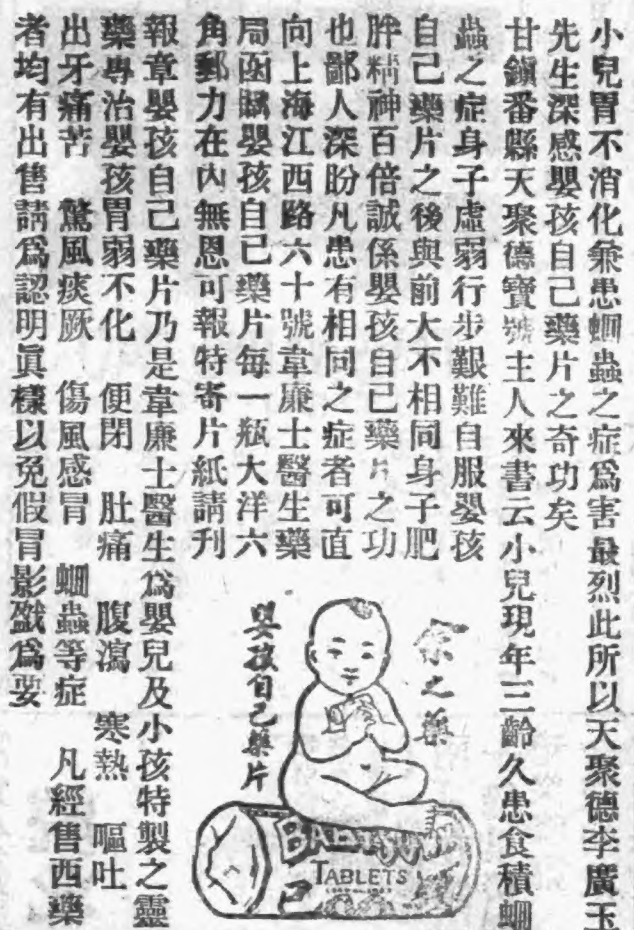 小兒胃不消化兼患蛔蟲之症爲害最烈此所以天聚德李廣玉
先生深感嬰孩自己藥片之奇功矣
甘鎭番縣天聚德寶號主人來書云小兒現年三齡久患食積蛔
蟲之症身子虛弱行步艱難自服嬰孩
自己藥片之後與前大不相同身子肥
胖精神百倍誠係嬰孩自己藥片之功
也鄙人深盼凡患有相同之症者可直
向上海江西路六十號韋廉士醫生藥
局函購嬰孩自己藥片每一瓶大洋六
角郵力在內無恩可報特寄片紙請刊
報章嬰孩自己藥片乃是韋廉士醫生爲嬰兒及小孩特製之靈
藥專治嬰孩胃弱不化 便閉 肚痛 腹瀉 寒熱 嘔吐
出牙痛苦 驚風痰厥 傷風感冒 蛔蟲等症 凡經售西藥
者均有出售請爲認明眞樣以免假冒影戤爲要
余之藥
嬰孩自己藥片
TABLETS